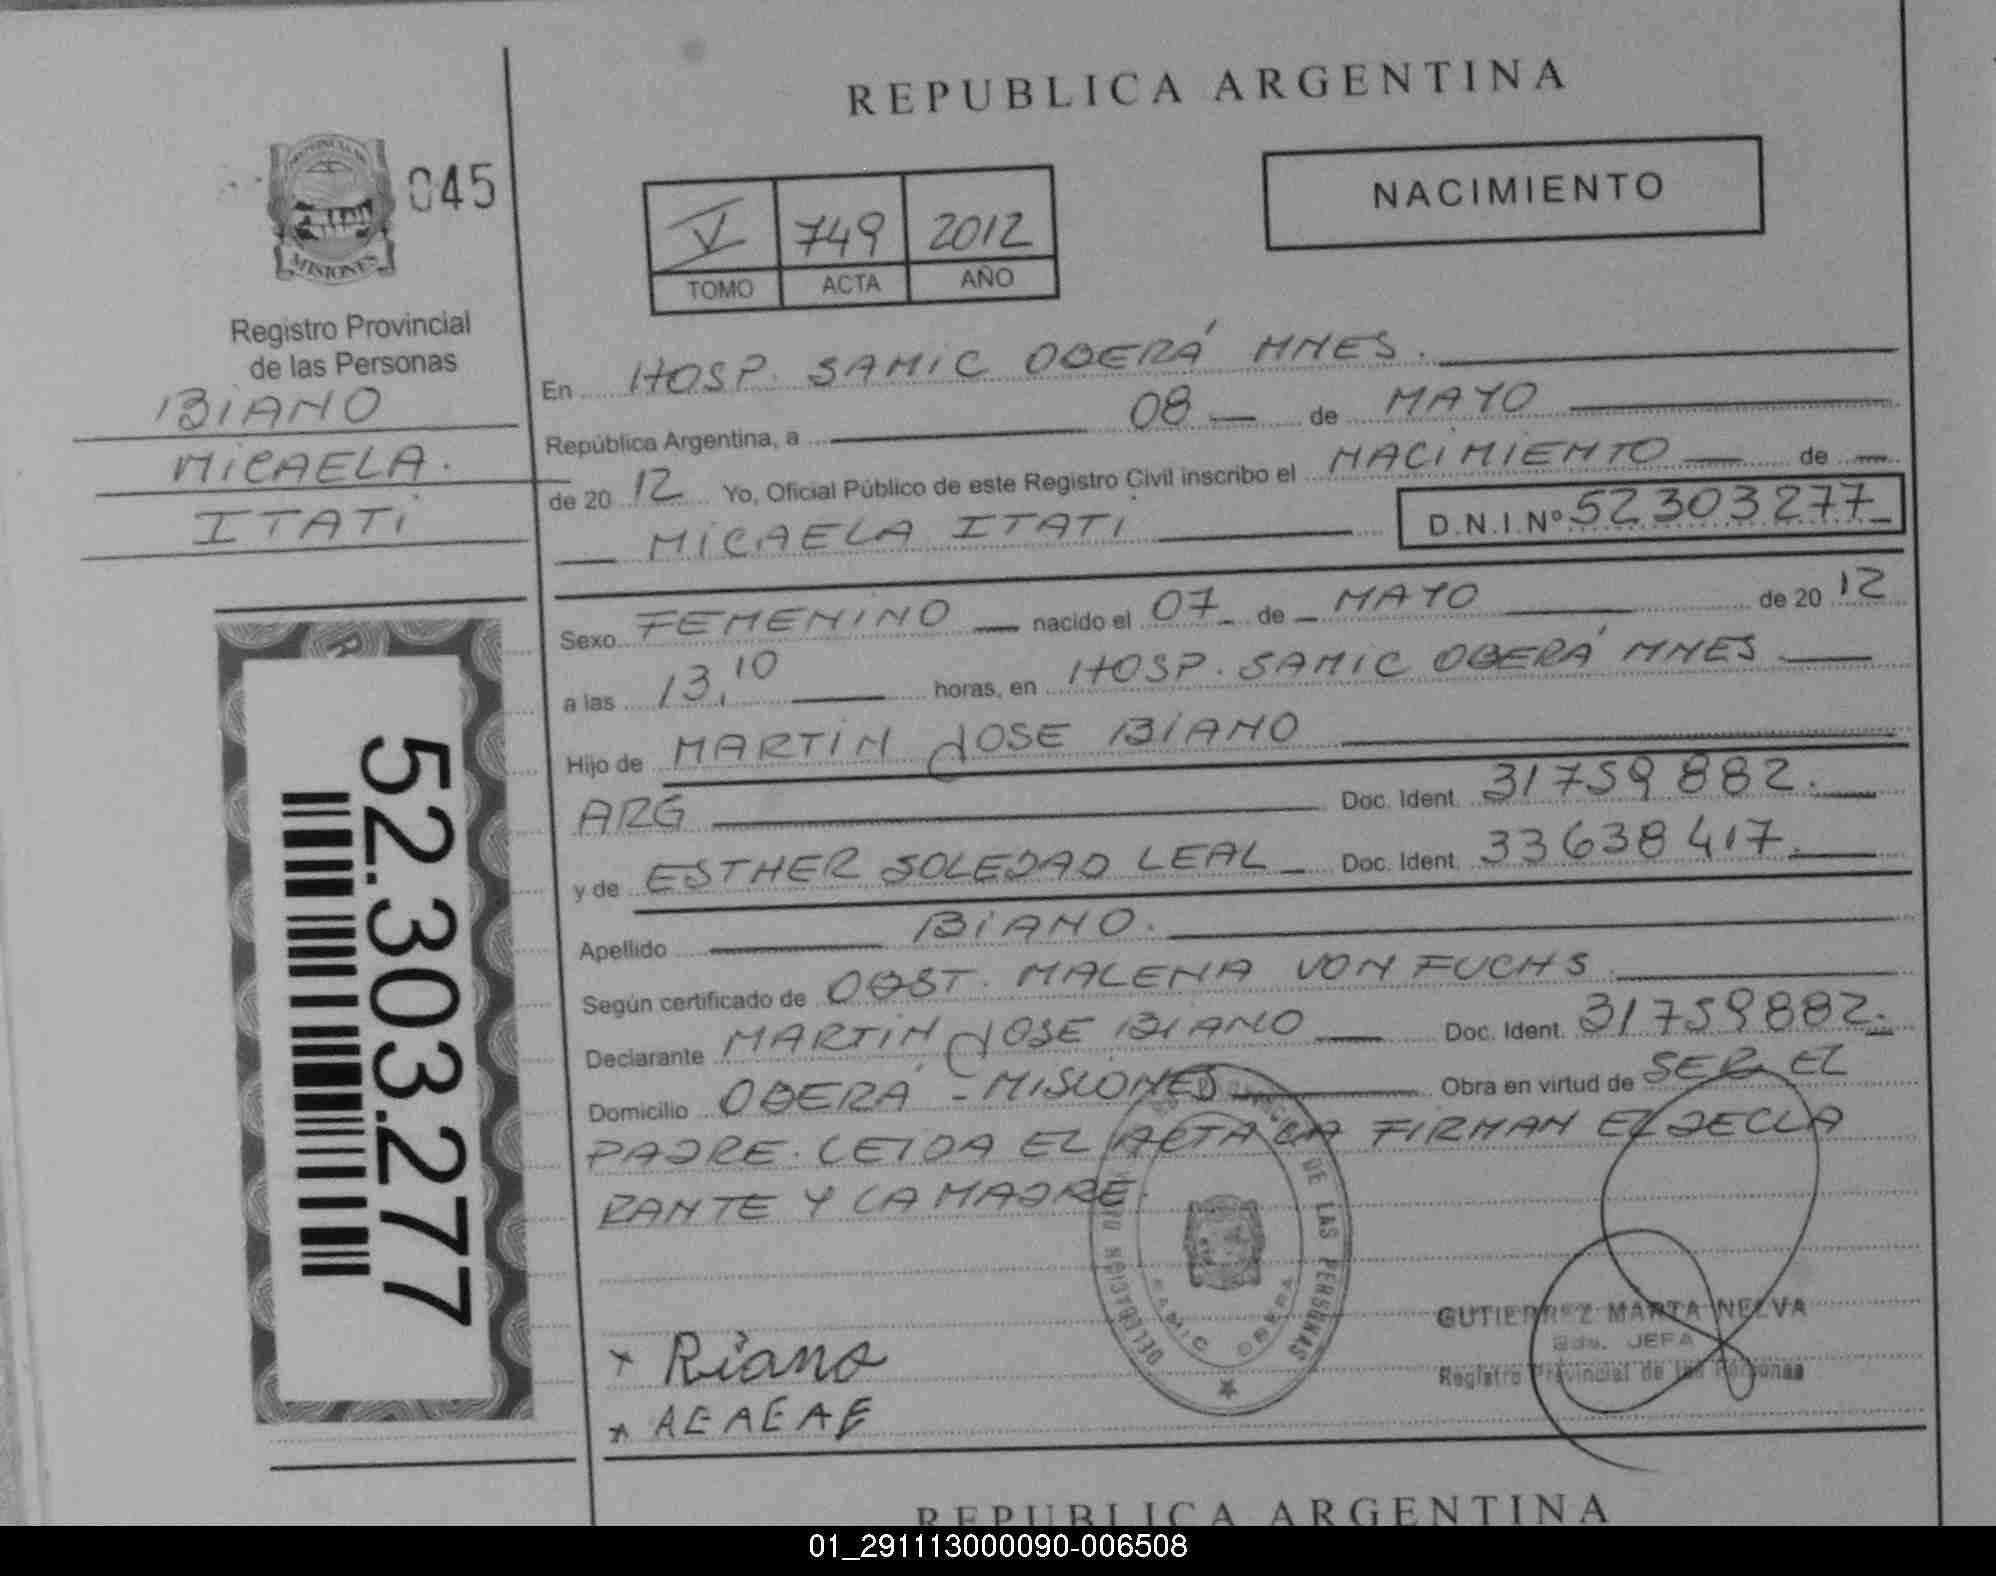 REPUBLICA ARGENTINA
NACIMIENTO
PROVINCIA DE
MISIONES
045
V 749 2012
TOMO ACTA AÑO
Registro Provincial
de las Personas
BIANO
MICAELA.
ITATI
52.303.277
En HOSP. SAMIC OBERÁ MNES.
República Argentina, a 08 de MAYO
de 20 12 Yo, Oficial Público de este Registro Civil inscribo el NACIMIENTO de
MICAELA ITATI D.N.I.Nº 52303277
Sexo FEMENINO nacido el 07 de MAYO de 20 12
a las 13,10 horas, en HOSP. SAMIC OBERÁ MNES
Hijo de MARTIN JOSE BIANO
ARG Doc. Ident. 31759882.
y de ESTHER SOLEDAD LEAL Doc. Ident. 33638417.
Apellido BIANO.
Según certificado de OBST. MALENA VON FUCHS
Declarante MARTIN JOSE BIANO Doc. Ident. 31759882.
Domicilio OBERÁ - MISIONES Obra en virtud de SER EL
PADRE. LEIDA EL ACTA LA FIRMAN EL DECLA
RANTE Y LA MADRE.
DE LAS PERSONAS
DELEGACION
SAMIC OBERA
GUTIERREZ MARTA NELVA
JEFA
Registro Provincial de las Personas
x Riano
x AEAEAE
REPUBLICA ARGENTINA
01_291113000090-006508